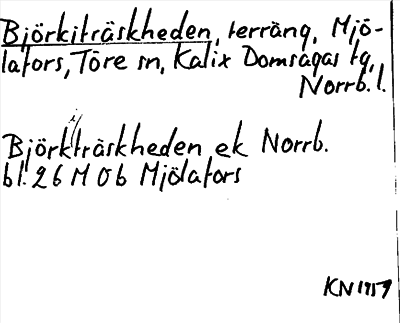 Björkiträskheden, terräng, Mjö-
lafors, Töre sn, Kalix Domsagas tg,
Norrb. l.
Björkiträskheden ek Norrb.
bl. 26 M 0b Mjölafors
KN 1959